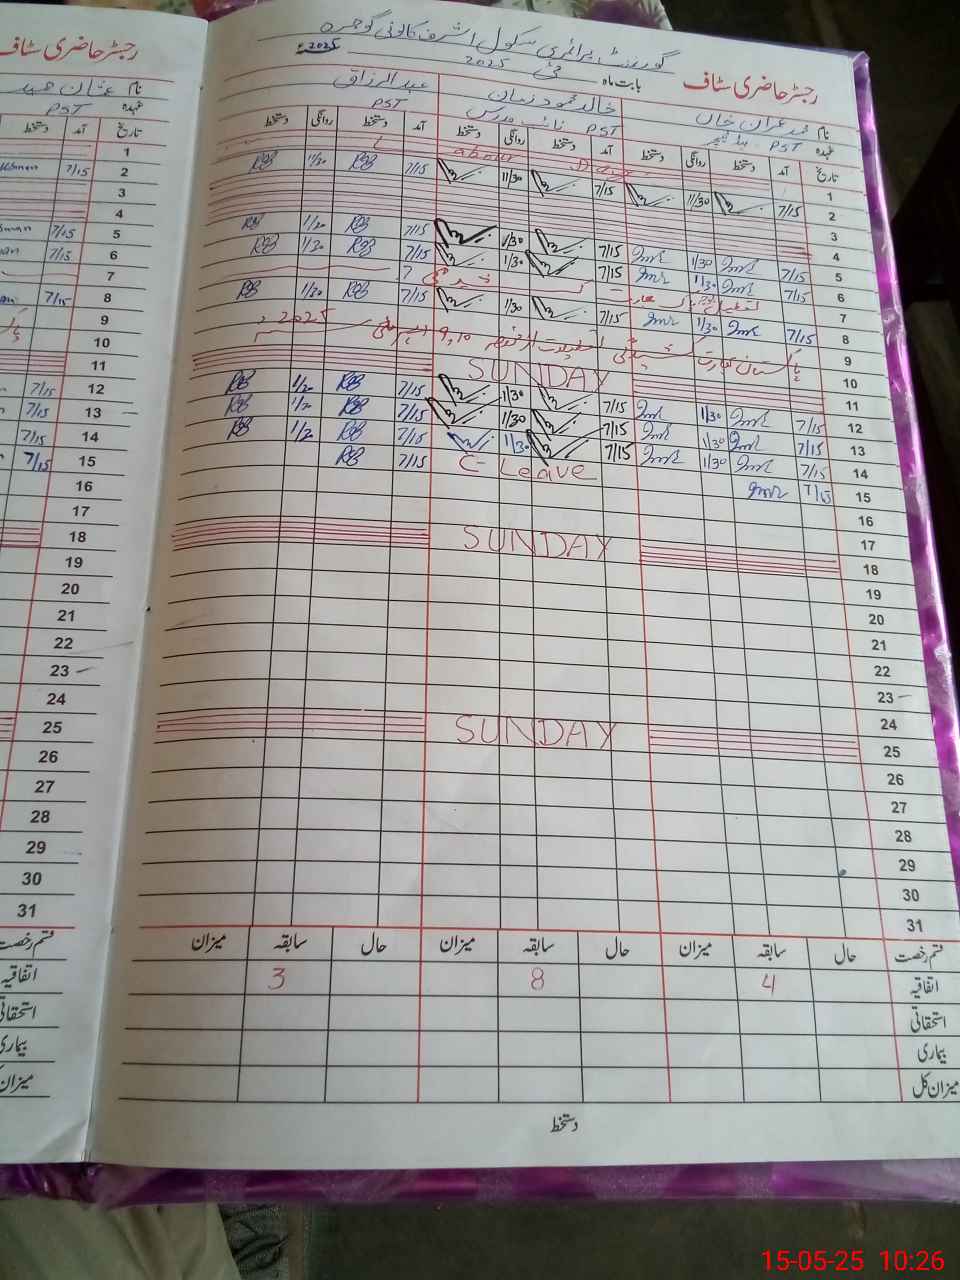 گورنمنٹ پرائمری سکول اشرف کالونی گوجرہ
رجسٹر حاضری سٹاف بابت ماہ مئی 2025 2025ء
رجسٹر حاضری سٹاف
نام محمد عمران خان خالد محمود زمان عبدالرزاق
نام عثمان حمید
عہدہ PST ہیڈ ٹیچر PST نائب مدرس PST
عہدہ PST
تاریخ آمد دستخط روانگی دستخط آمد دستخط روانگی دستخط آمد دستخط روانگی دستخط
تاریخ آمد دستخط
1 Labour Day
2 7/15 11/30 7/15 11/30 7/15 1/30
3
4
5 7/15 1/30 7/15 1/30 7/15 1/30
6 7/15 1/30 7/15 1/30 7/15 1/30
7
8 7/15 1/30 7/15 1/30 7/15 1/30
9 پاکستان بھارت کشیدگی 9,10 مئی 2025
10
11 SUNDAY
12 7/15 1/30 7/15 1/30 7/15 1/30
13 7/15 1/30 7/15 1/30 7/15 1/30
14 7/15 1/30 7/15 1/30 7/15 1/30
15 7/15 C-Leave 7/15
16
17
18 SUNDAY
19
20
21
22
23
24
25 SUNDAY
26
27
28
29
30
31
قسم رخصت حال سابقہ میزان حال سابقہ میزان حال سابقہ میزان
اتفاقیہ 4 8 3
استحقاقی
بیماری
میزان کل
دستخط
1
2 7/15
3
4
5 7/15
6 7/15
7
8 7/15
9
10
11
12 7/15
13 7/15
14 7/15
15 7/15
16
17
18
19
20
21
22
23
24
25
26
27
28
29
30
31
قسم رخصت
اتفاقیہ
استحقاقی
بیماری
میزان
15-05-25 10:26